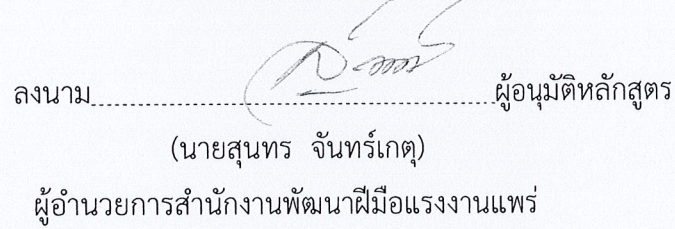 ลงนาม........................................................ผู้อนุมัติหลักสูตร
(นายสุนทร จันทร์เกตุ)
ผู้อำนวยการสำนักงานพัฒนาฝีมือแรงงานแพร่